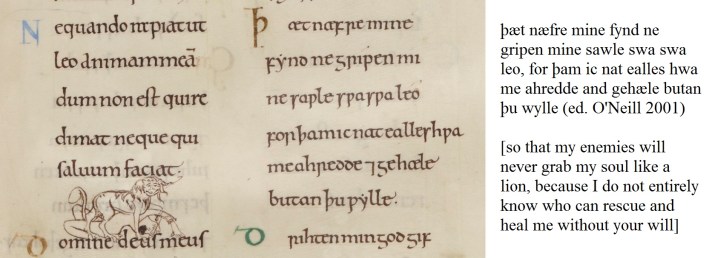 Nequando rapiat ut
leo animam meā
dum non est qui re
dimat neque qui
saluum faciat·
Domine deus meus
Þæt næfre mine
fẏnd ne gripen mi
ne saƿle sƿa sƿa leo
for þam ic nat ealles hƿa
me ahredde ⁊ gehæle
butan þu ƿẏlle·
Drihten min god gif
þæt næfre mine fynd ne
gripen mine sawle swa swa
leo, for þam ic nat ealles hwa
me ahredde and gehæle butan
þu wylle (ed. O'Neill 2001)
[so that my enemies will
never grab my soul like a
lion, because I do not entirely
know who can rescue and
heal me without your will]